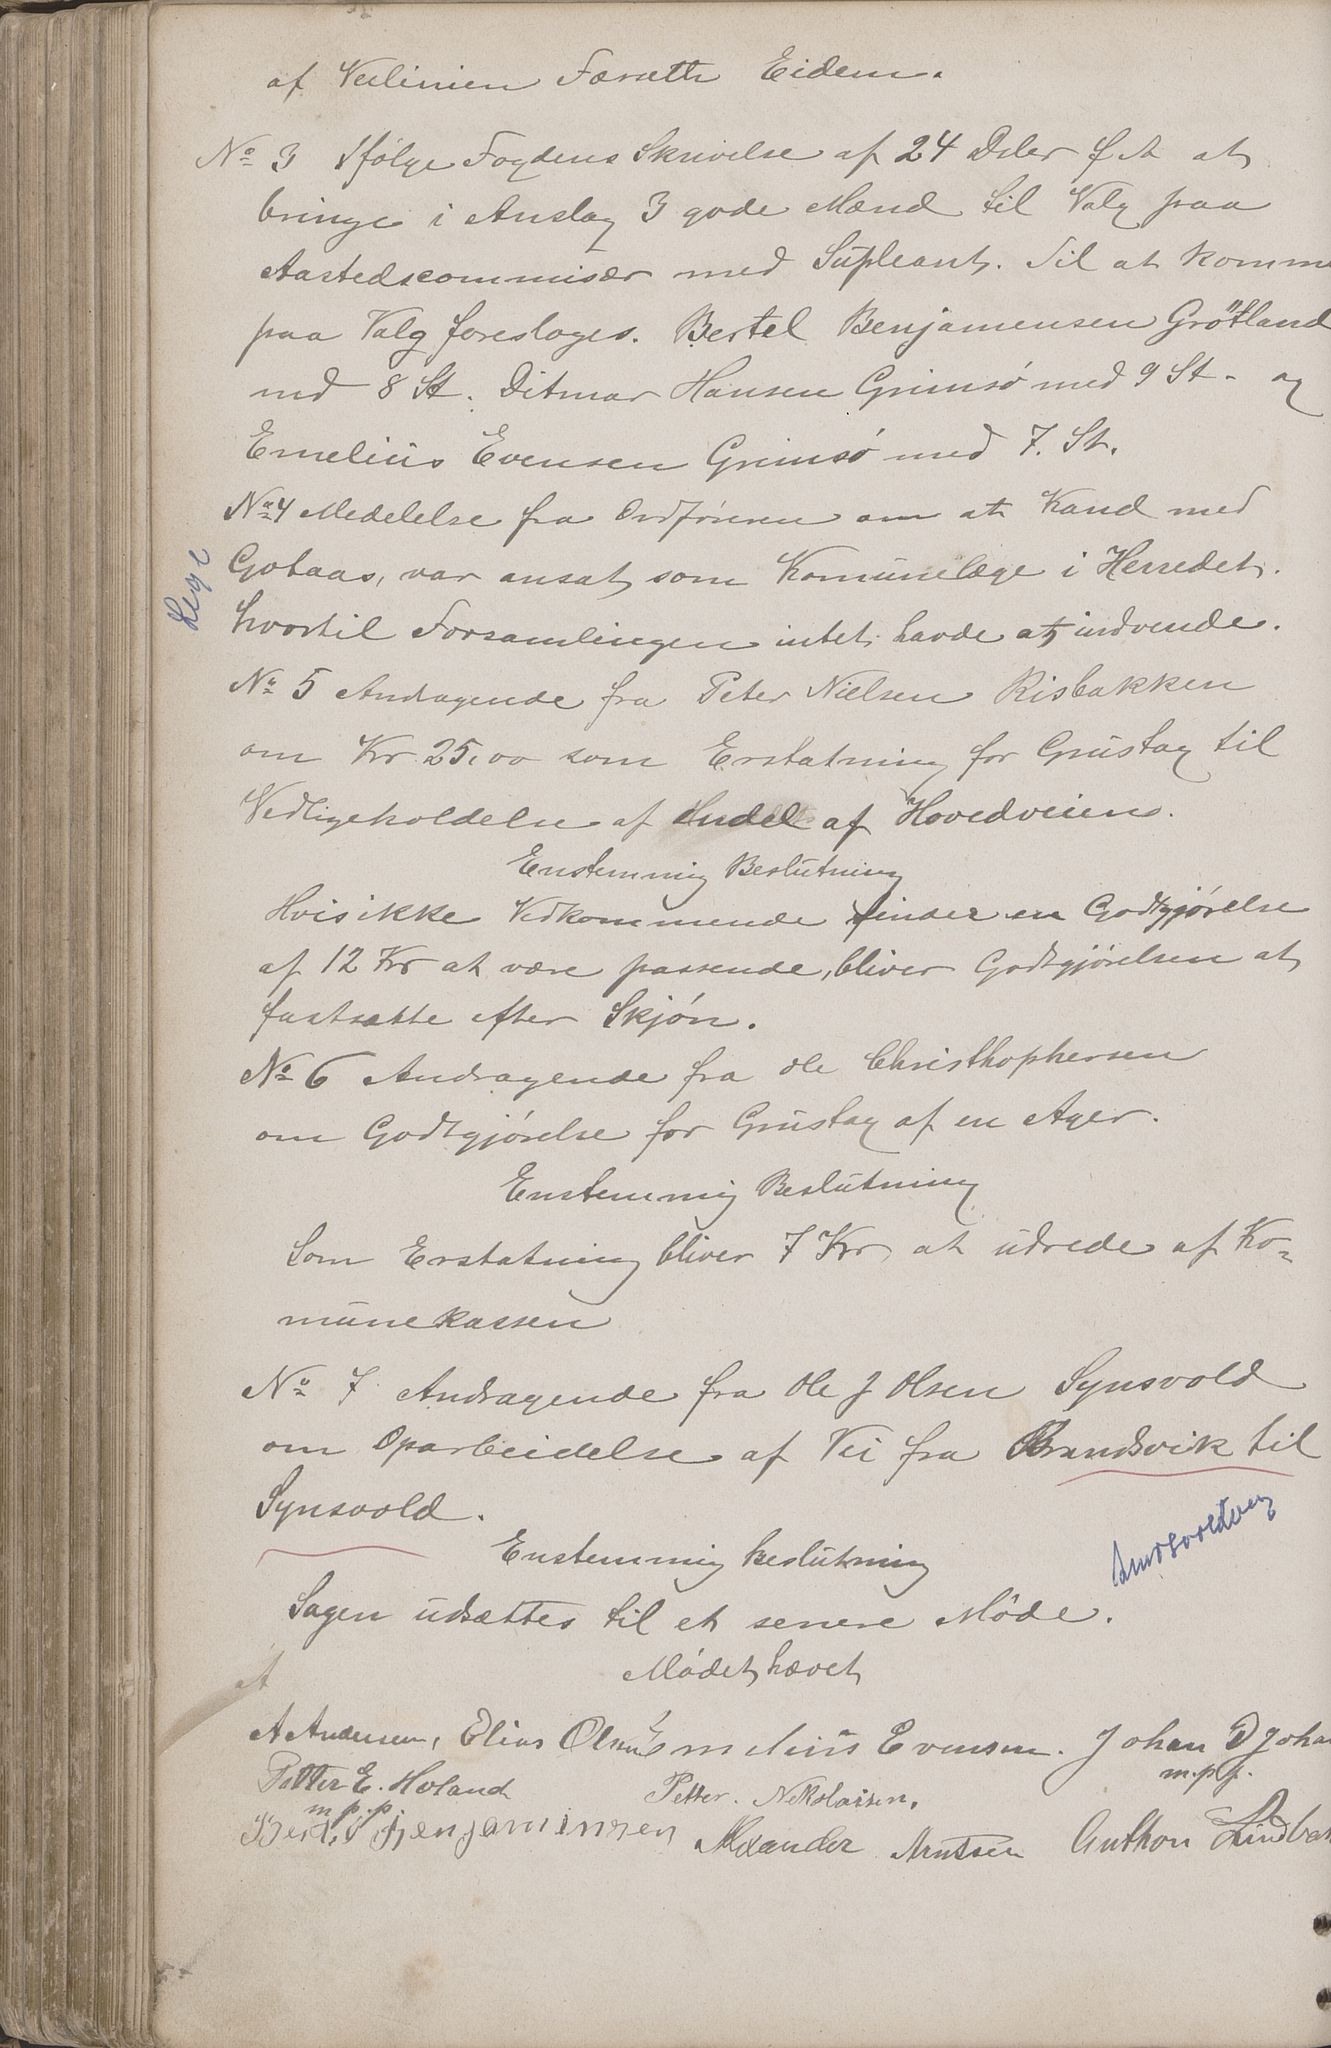 af Veilinien Færseth Eidem.
No 3 Ifølge Fogdens Skrivelse af 24 Dsbr f A at
bringe i Anslag 3 gode Mænd til Valg paa
Aastedscommisær med Supleant. Til at komme
paa Valg foresloges. Bertel Benjamensen Grøtland
md 8 St. Ditmar Hansen Grimsø med 9 St. og
Emelius Evensen Grimsø med 7. St.
No 4 Medelelse fra Ordføreren om at Kand med
Gotaas, var ansat som Komunelæge i Herredet.
Lege
hvortil Forsamlingen intet havde at indvende.
No 5 Andragende fra Peter Nielsen Risbakken
om Kr 25,00 som Erstatning for Grustag til
Vedligeholdelse af Andel af Hovedveien.
Enstemmig Beslutning
Hvis ikke Vedkommende finder en Godtgjørelse
af 12 Kr at være passende, bliver Godtgjørelsen at
fastsætte efter Skjøn.
No 6 Andragende fra Ole Christhophersen
om Godtgjørelse for Grustag af en Ager.
Enstemmig Beslutning
Som Erstatning bliver 7 Kr at udrede af Ko-
munekassen
No 7 Andragende fra Ole J Olsen Synsvold
om Oparbeidelse af Vei fra Brandsvik til
Synsvold.
Enstemmig beslutning
Sagen udsættes til et senere Møde.
Mødet hævet
A
A Andersen, Elias Olsen Emelius Evensen. Johan D Joha
m.p.p.
Petter E. Hvland Petter. Nikolaisen.
m.p.p
Bertel Benjaminsen Alexander Arntsen Anthon Lindba